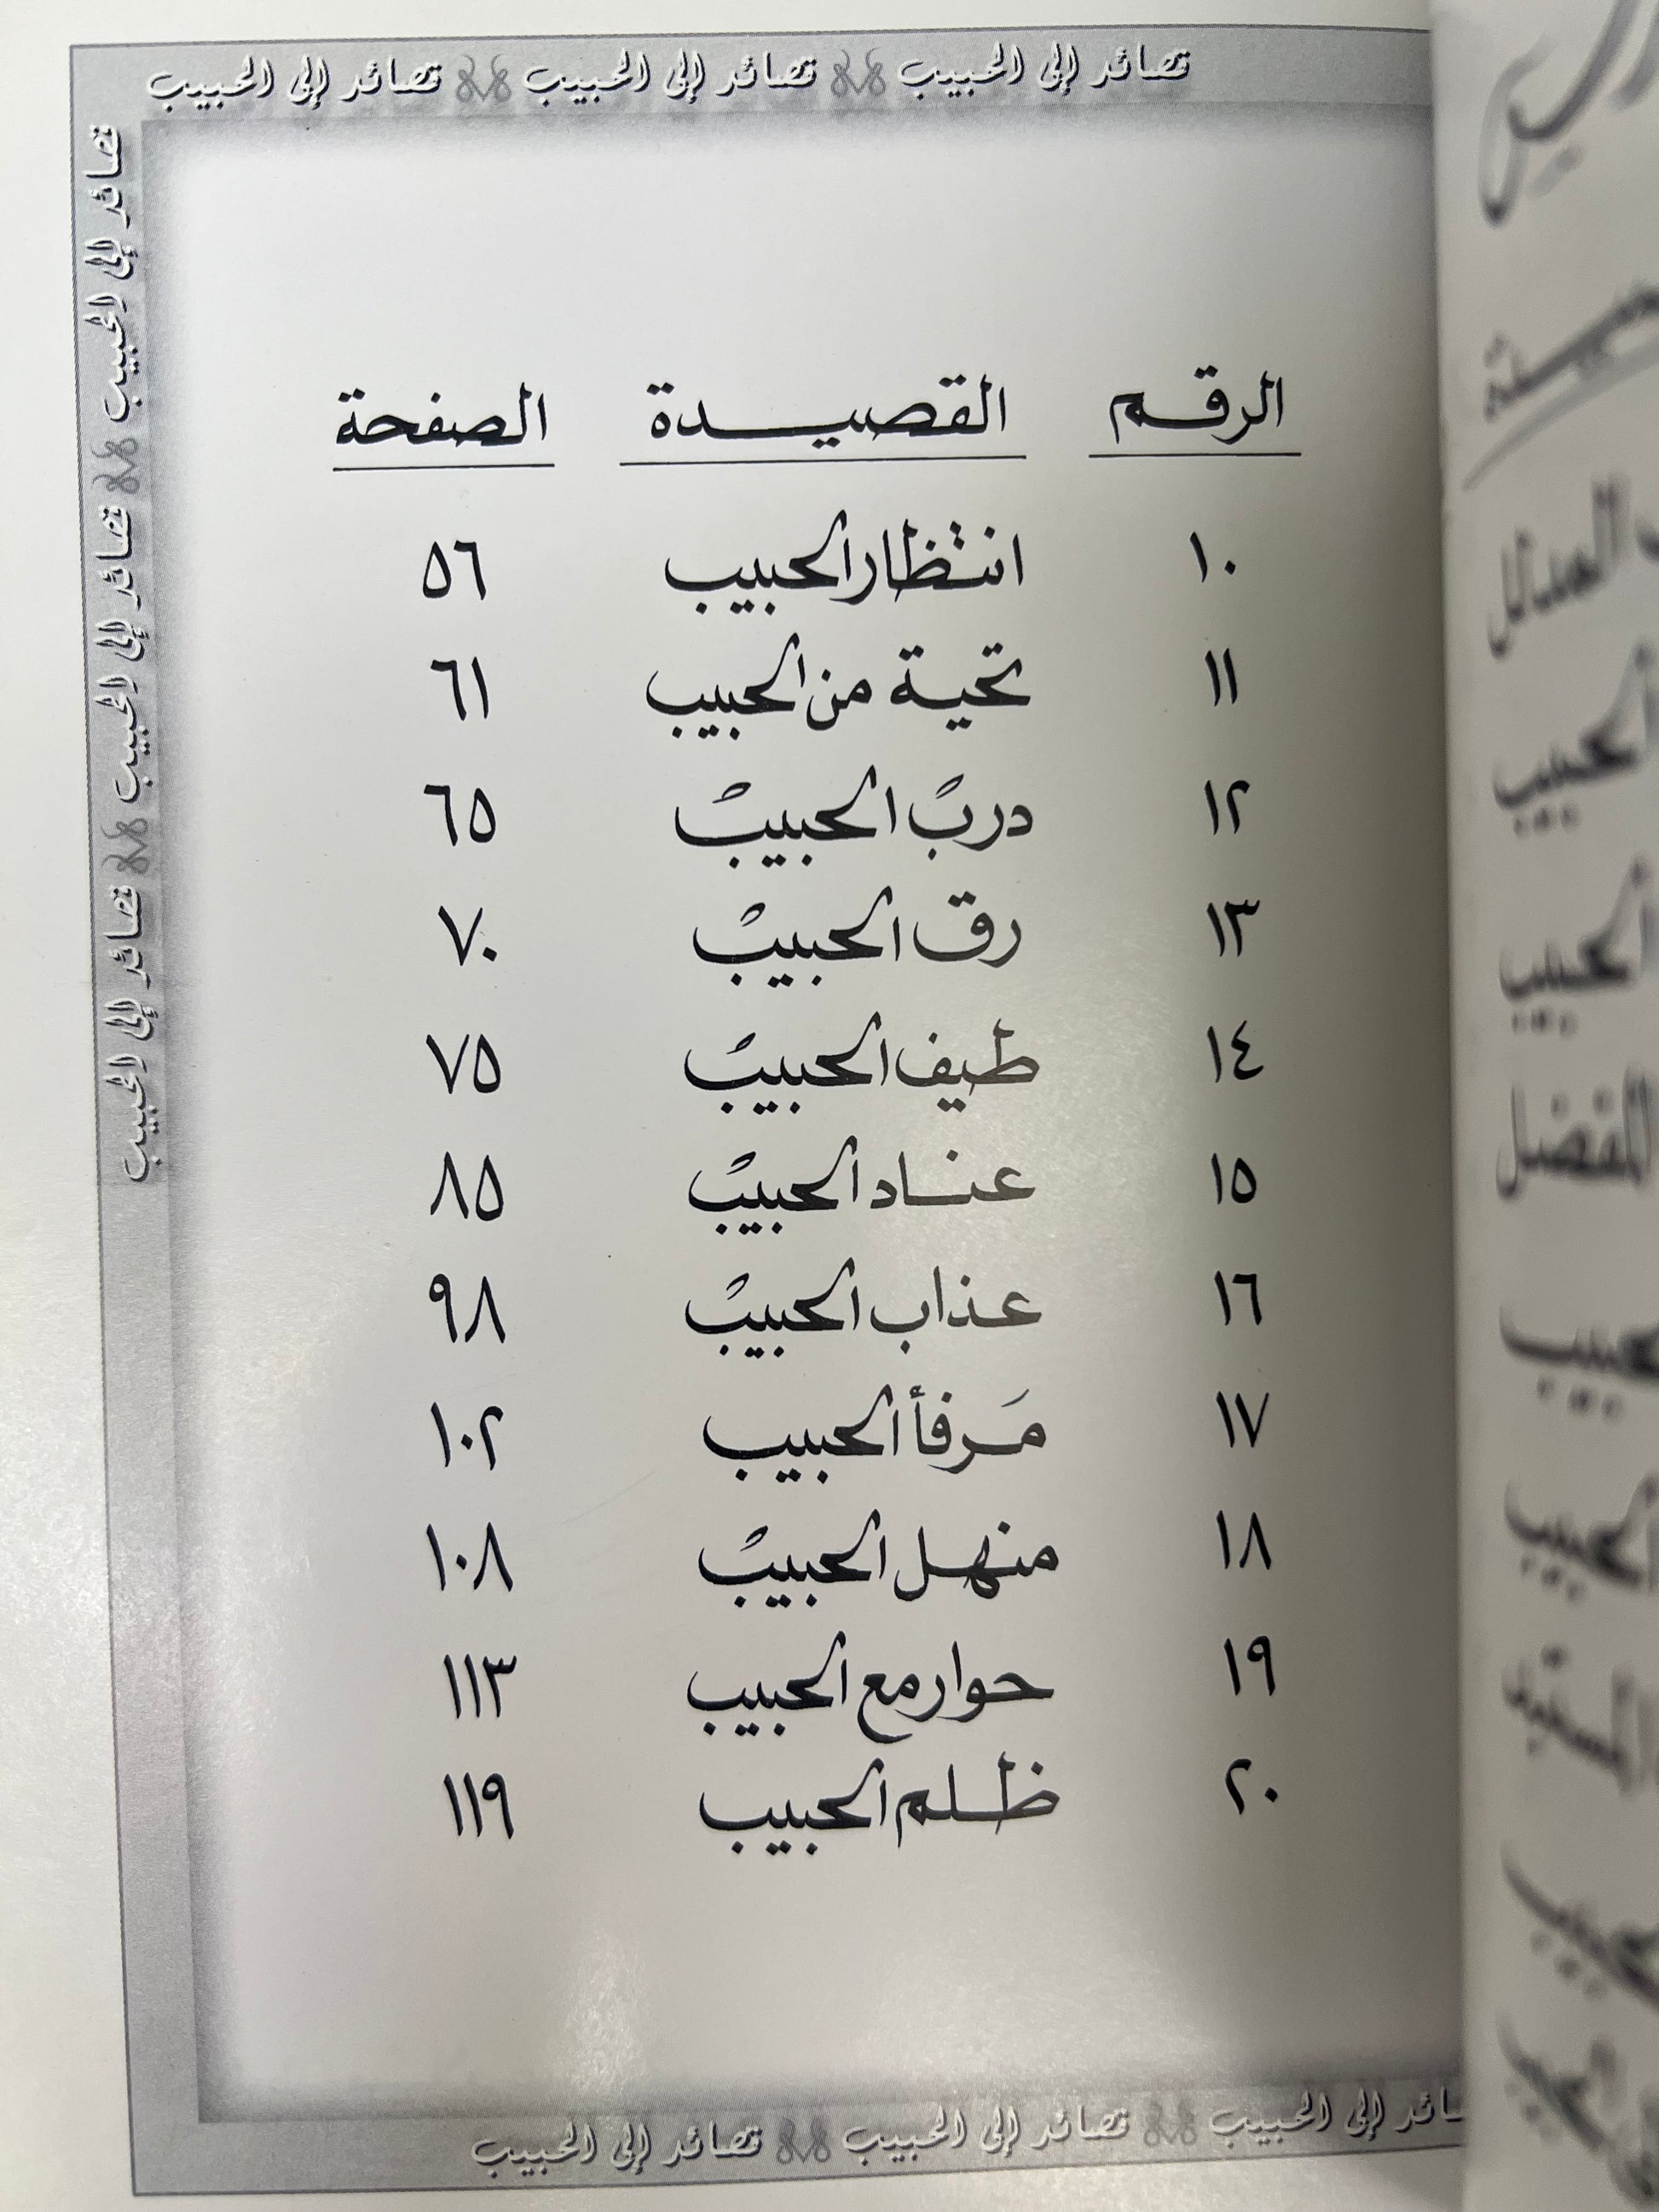 قصائد إلى الحبيب قصائد إلى الحبيب قصائد إلى الحبيب
قصائد إلى الحبيب قصائد إلى الحبيب قصائد إلى الحبيب
الرقم القصيدة الصفحة
١٠ انتظار الحبيب ٥٦
١١ تحية من الحبيب ٦١
١٢ دربُ الحبيبْ ٦٥
١٣ رق الحبيبْ ٧٠
١٤ طيف الحبيبْ ٧٥
١٥ عناد الحبيبْ ٨٥
١٦ عذاب الحبيبْ ٩٨
١٧ مَرفأ الحبيب ١٠٢
١٨ منهل الحبيبْ ١٠٨
١٩ حوار مع الحبيب ١١٣
٢٠ ظلم الحبيب ١١٩
إلى الحبيب قصائد إلى الحبيب قصائد إلى الحبيب